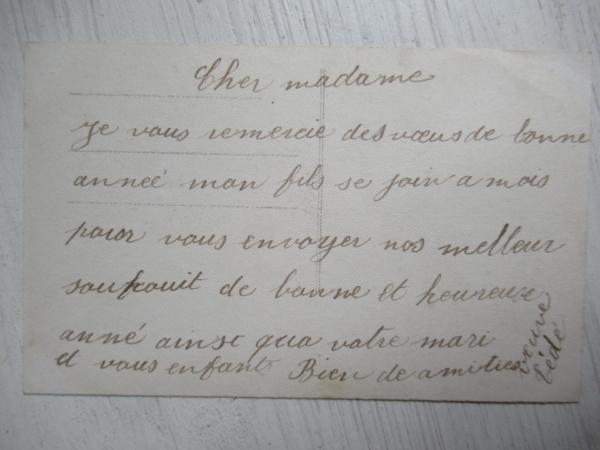 Cher madame
Je vous remercie des vœus de bonne
anneé mon fils se join a mois
pour vous envoyer nos melleur
souhouit de bonne et heureuse
anné ainsi qua votre mari
et vous enfant Bien de amities
veuve
Bédé